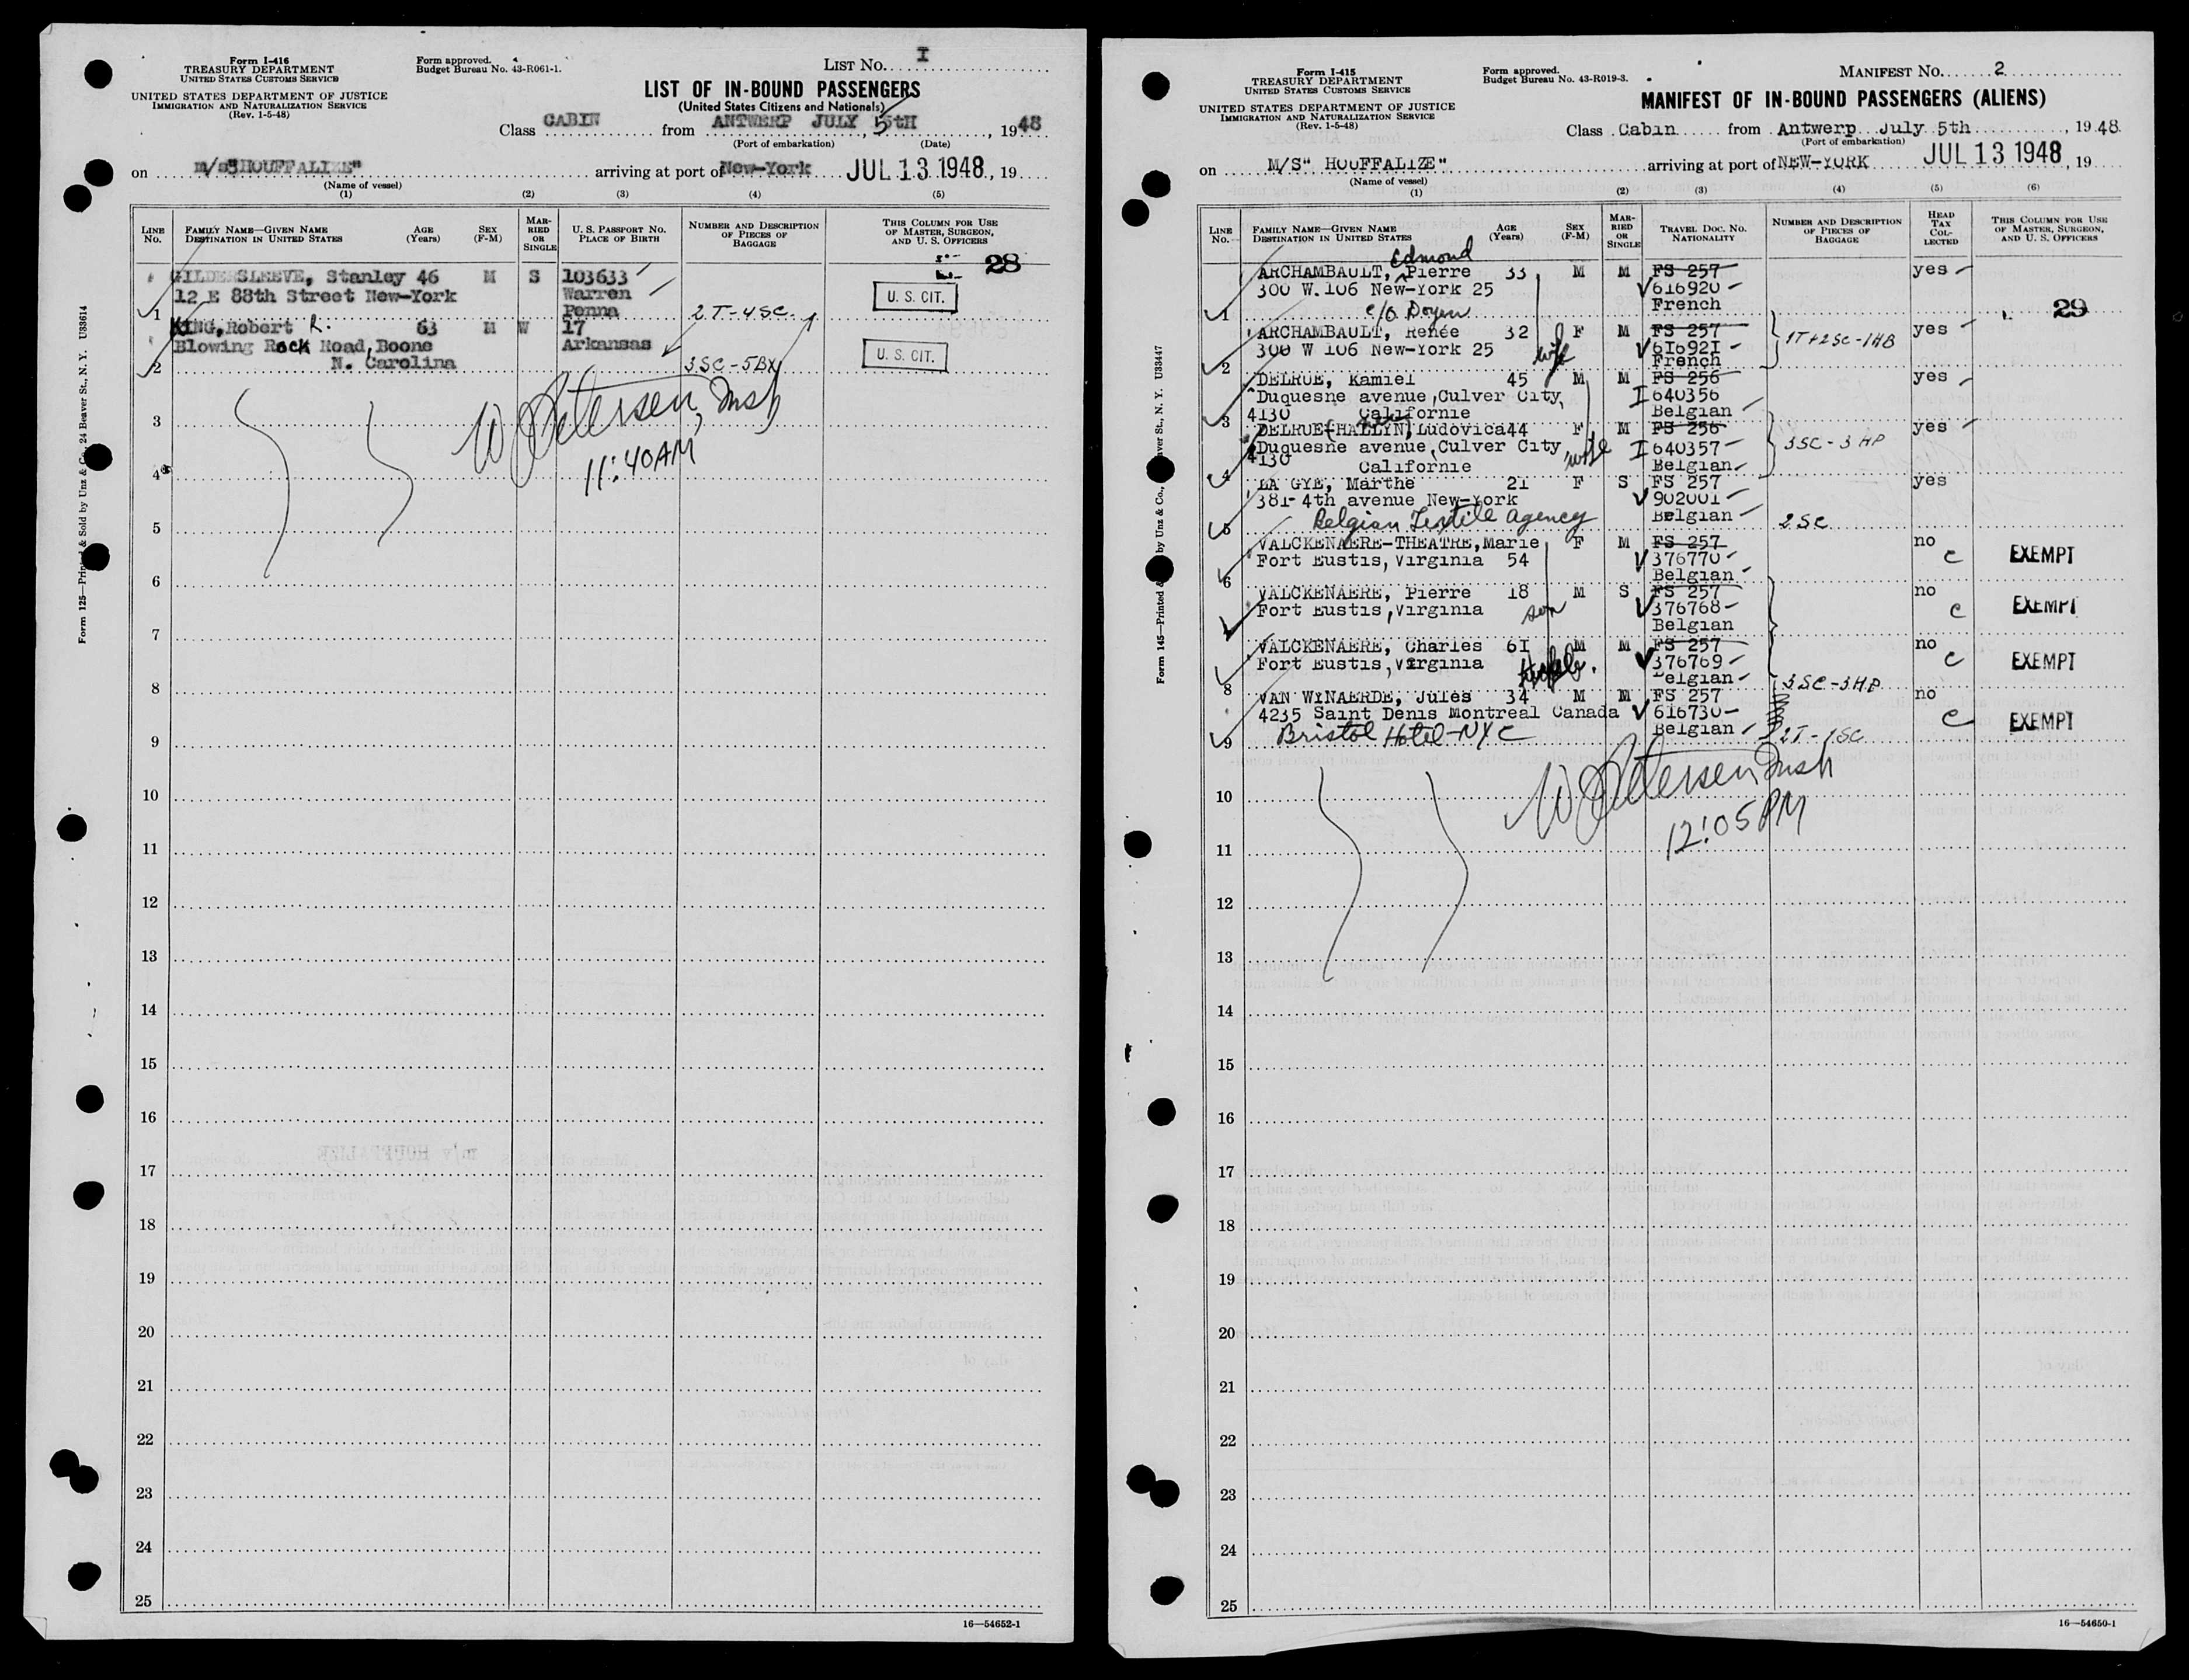 Form I-416
TREASURY DEPARTMENT
UNITED STATES CUSTOMS SERVICE
UNITED STATES DEPARTMENT OF JUSTICE
IMMIGRATION AND NATURALIZATION SERVICE
(Rev. 1-5-48)
Form approved.
Budget Bureau No. 43-R061-1.
LIST No. I
LIST OF IN-BOUND PASSENGERS
(United States Citizens and Nationals)
Class CABIN from ANTWERP JULY 5tH, 1948
(Port of embarkation) (Date)
on m/s"HOUFFALIZE" arriving at port of New-York JUL 13 1948, 19
(Name of vessel)
(1) (2) (3) (4) (5)
LINE No. FAMILY NAME—GIVEN NAME DESTINATION IN UNITED STATES AGE (Years) SEX (F-M) MARRIED OR SINGLE U. S. PASSPORT NO. PLACE OF BIRTH NUMBER AND DESCRIPTION OF PIECES OF BAGGAGE THIS COLUMN FOR USE OF MASTER, SURGEON, AND U. S. OFFICERS
28
GILDERSLEEVE, Stanley 46 M S 103633
12 E 88th Street New-York Warren U. S. CIT.
1 Penna 2T-4SC.
KING, Robert R. 63 M W 17
Blowing Rock Road, Boone Arkansas U. S. CIT.
2 N. Carolina 3SC-5BX
W Petersen, Insp
11:40AM
3
4
5
6
7
8
9
10
11
12
13
14
15
16
17
18
19
20
21
22
23
24
25
16—54652-1
Form 125—Printed & Sold by Unz & Co., 24 Beaver St., N. Y. U33614
m/v HOUFFALIZE
Form I-415
TREASURY DEPARTMENT
UNITED STATES CUSTOMS SERVICE
UNITED STATES DEPARTMENT OF JUSTICE
IMMIGRATION AND NATURALIZATION SERVICE
(Rev. 1-5-48)
Form approved.
Budget Bureau No. 43-R019-3.
MANIFEST No. 2
MANIFEST OF IN-BOUND PASSENGERS (ALIENS)
Class Cabin from Antwerp July 5th, 1948.
(Port of embarkation)
on M/S" HOUFFALIZE" arriving at port of NEW-YORK JUL 13 1948, 19
(Name of vessel)
(1) (2) (3) (4) (5) (6)
LINE No. FAMILY NAME—GIVEN NAME DESTINATION IN UNITED STATES AGE (Years) SEX (F-M) MARRIED OR SINGLE TRAVEL DOC. NO. NATIONALITY NUMBER AND DESCRIPTION OF PIECES OF BAGGAGE HEAD TAX COLLECTED THIS COLUMN FOR USE OF MASTER, SURGEON, AND U. S. OFFICERS
Edmond
ARCHAMBAULT, Pierre 33 M M FS 257 yes
300 W. 106 New-York 25 616920
1 c/o Doyen French 29
ARCHAMBAULT, Renée 32 F M FS 257 yes
300 W 106 New-York 25 wife 616921 1T+2SC-1HB
2 French
DELRUE, Kamiel 45 M M FS 256 yes
Duquesne avenue, Culver City, I 640356
3 4130 Californie Belgian
DELRUE (HALLYN) Ludovica 44 F M FS 256 yes
Duquesne avenue, Culver City wife I 640357 3SC-3HP
4130 Californie Belgian
4
LA GYE, Marthe 21 F S FS 257 yes
381-4th avenue New-York 902001
5 Belgian Textile Agency Belgian 2SC
VALCKENAERE-THEATRE, Marie F M FS 257 no
Fort Eustis, Virginia 54 376770 c EXEMPT
6 Belgian
VALCKENAERE, Pierre 18 M S FS 257 no
Fort Eustis, Virginia son 376768 c EXEMPT
7 Belgian
VALCKENAERE, Charles 61 M M FS 257 no
Fort Eustis, Virginia 376769 c EXEMPT
8 Belgian 3SC-3HP
VAN WYNAERDE, Jules 34 M M FS 257 no
4235 Saint Denis Montreal Canada 616730 c EXEMPT
9 Bristol Hotel-NYC Belgian 2T-1SC
W Petersen Insp
12:05PM
10
11
12
13
14
15
16
17
18
19
20
21
22
23
24
25
16—54650-1
Form 145—Printed & by Unz & Co., ver St., N. Y. U33447